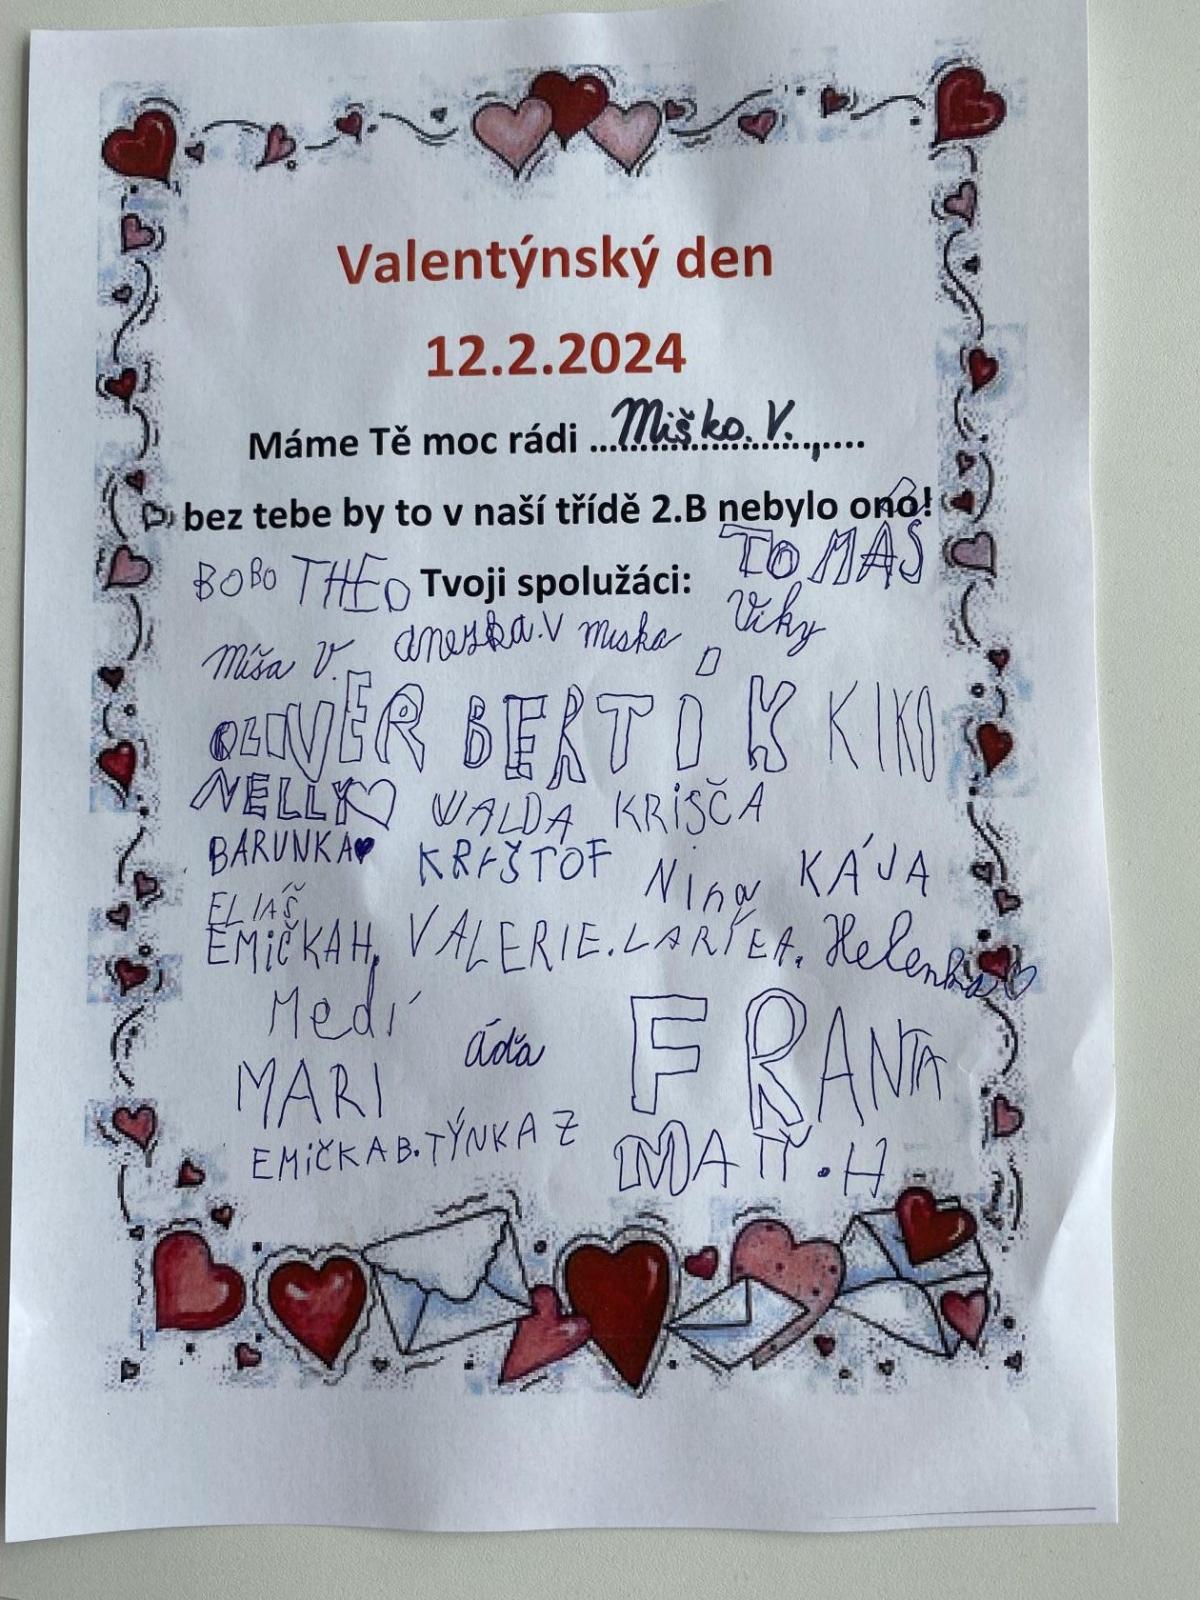 Valentýnský den
12.2.2024
Máme Tě moc rádi ....Miško. V.,....
bez tebe by to v naší třídě 2.B nebylo ono!
BOBO THEO Tvoji spolužáci: TOMÁŠ
Míša V. anežka.V Miska Viky
OLIVER BERTÍK KIKO
NELLY♡ WALDA KRISČA
BARUNKA♥ KRIŠTOF Nina KÁJA
ELIÁŠ
EMIČKAH. VALERIE. Helenka♡
Medí áďa FRANTA
MARI
EMIČKAB. TÝNKA Z MATÝ.H